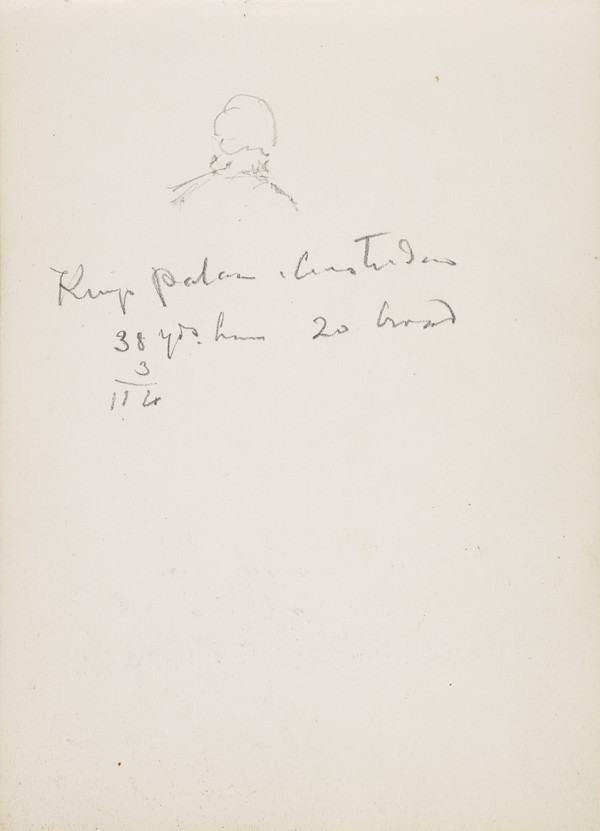 Kings palace Amsterdam
38 yds. 20 broad
3
114